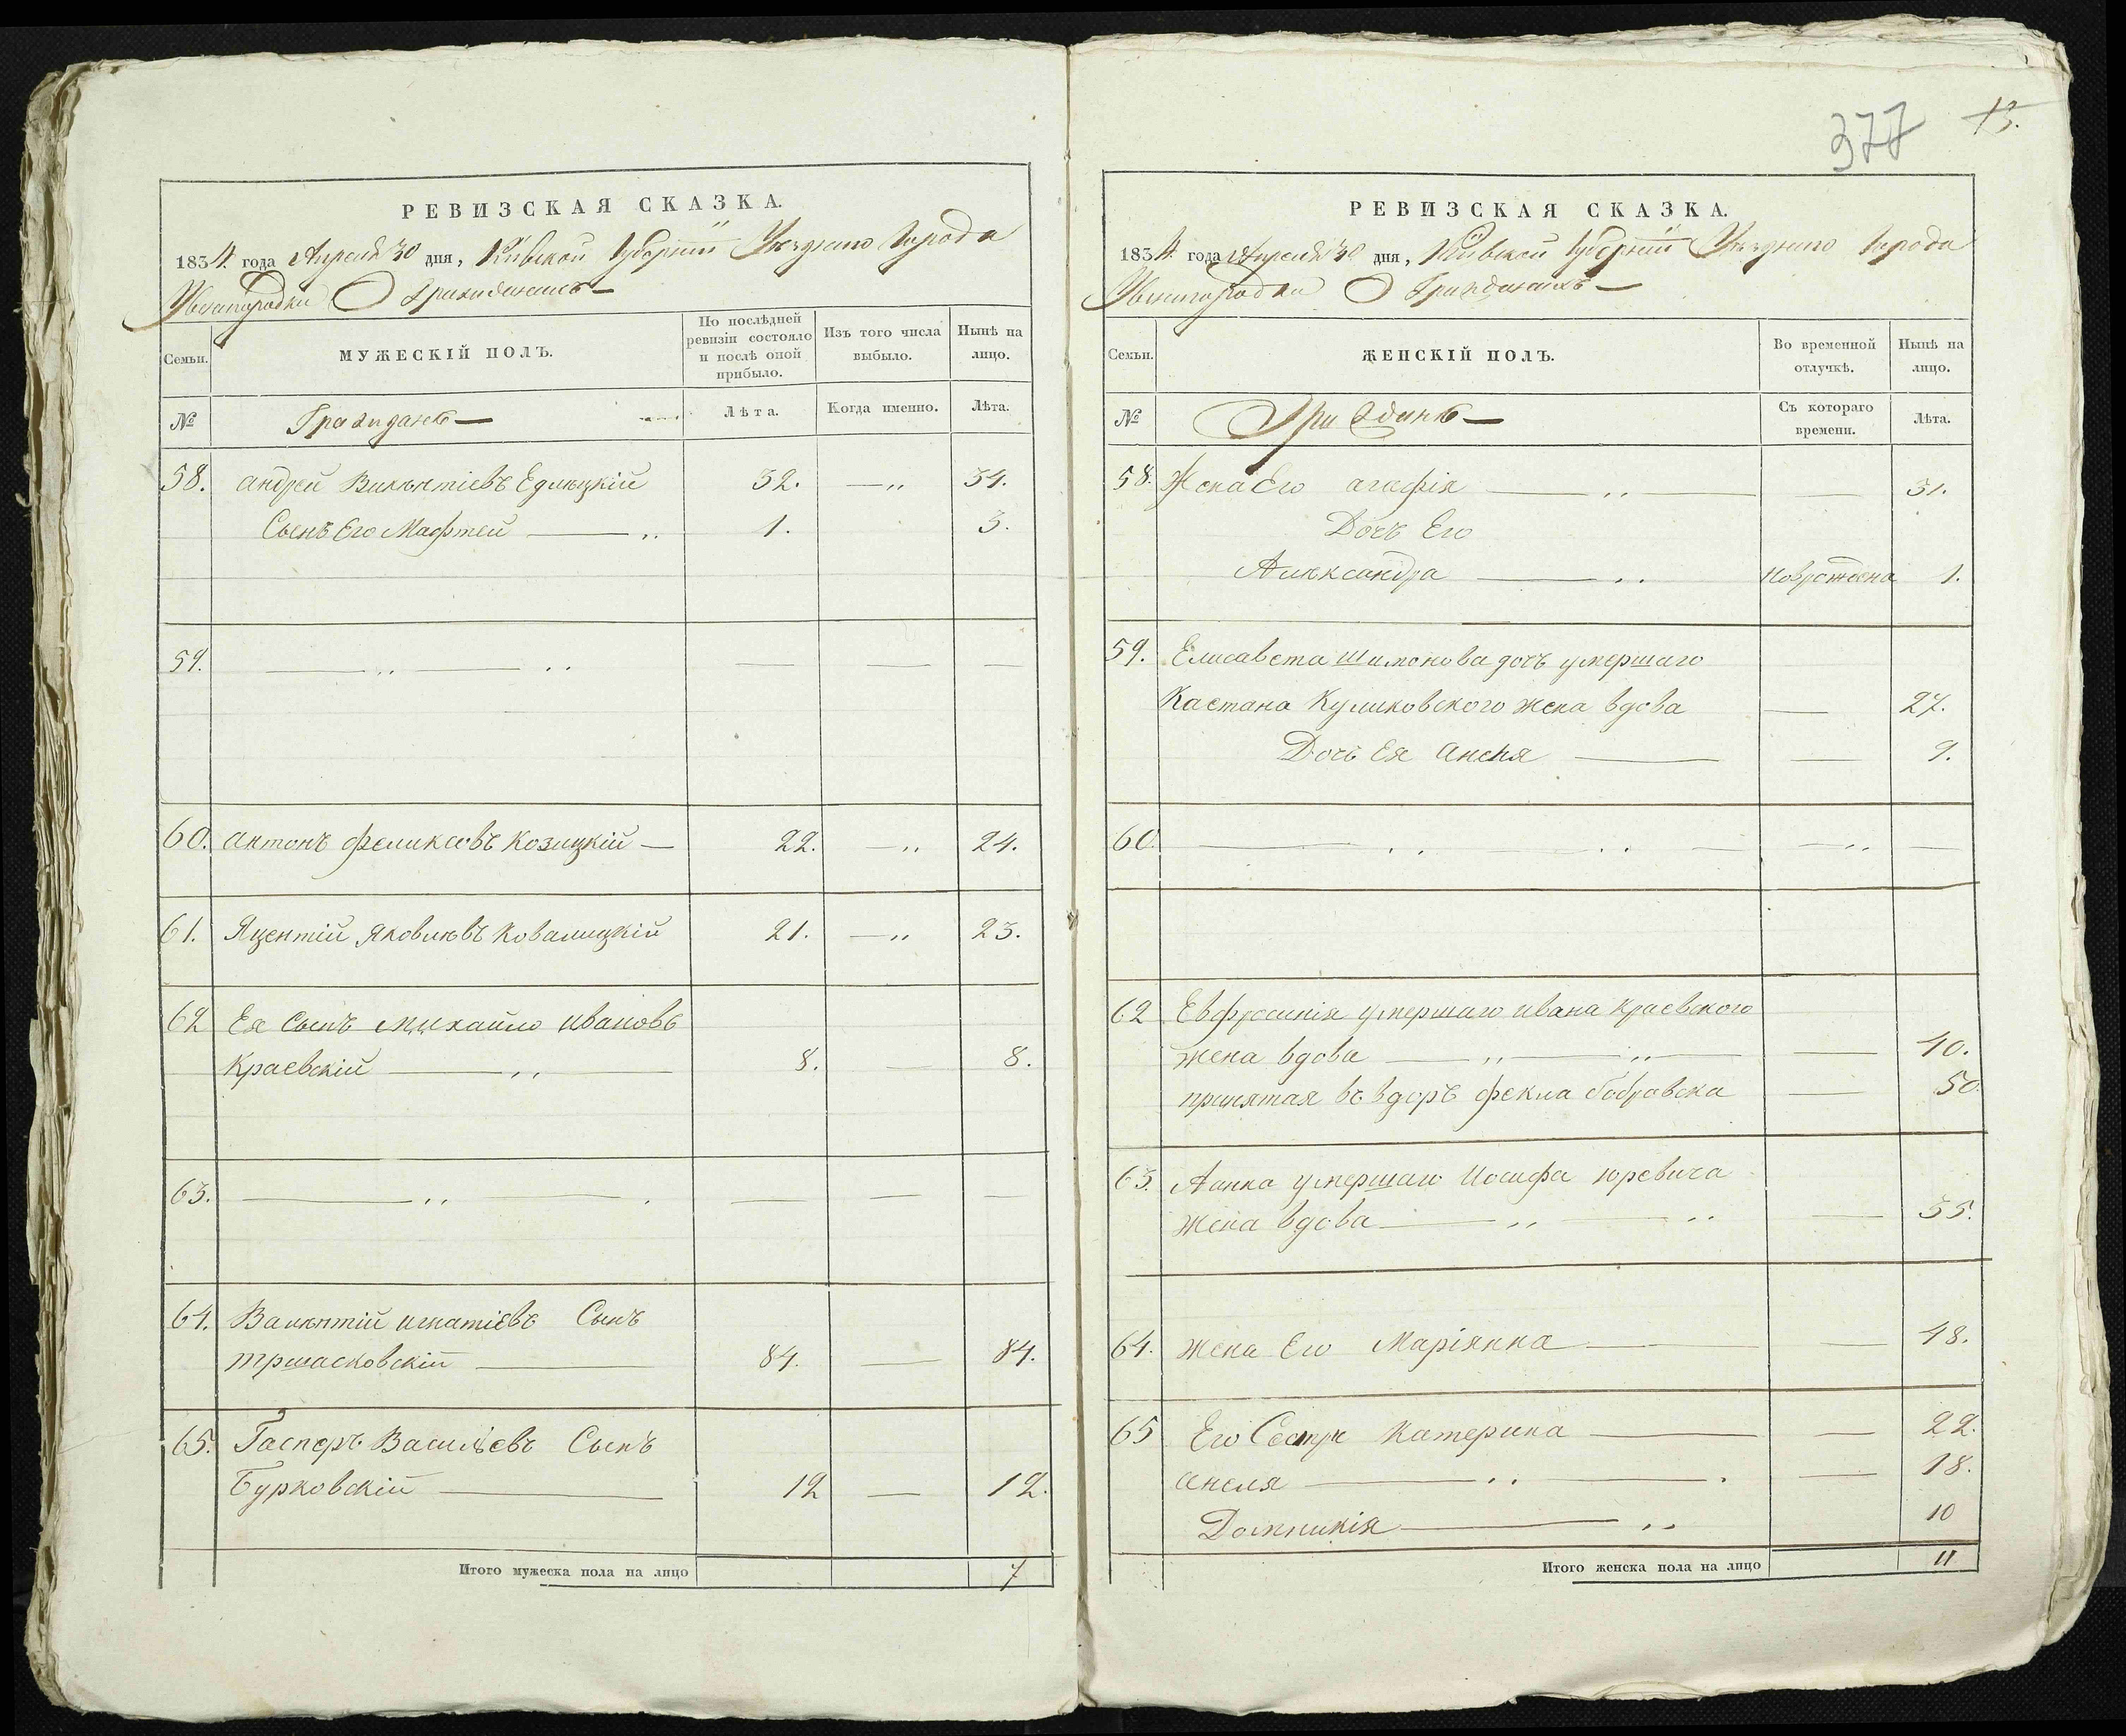 РЕВИЗСКАЯ СКАЗКА.
1834. года Апреля 30 дня, Кіевской Губерніи Уѣзднаго Города
Звенигородки О Гражданахъ —
Семьи.
МУЖЕСКІЙ ПОЛЪ.
По послѣдней ревизіи состояло и послѣ оной прибыло.
Изъ того числа выбыло.
Нынѣ на лицо.
№
Гражданѣ —
Лѣта.
Когда именно.
Лѣта.
58. Андрей Викентіевъ 32. —„ 34.
Сынъ Его Мафтей — „ 1. 3.
59. — „ — „ — — —
60. Антонъ Феликсовъ Козицкій — 22. —„ 24.
61. Яцентій Яковлѣвъ Ковалицкій 21. —„ 23.
62 Ея Сынъ Михайло Ивановъ
Краевскій — „ — 8. — 8.
63. — „ — . — — —
64. Валѣнтій Игнатіевъ Сынъ
— 84. — 84.
65. Гасперъ Василіевъ Сынъ
Бурковскій — 12 — 12.
Итого мужеска пола на лицо 7
377 13.
РЕВИЗСКАЯ СКАЗКА.
1834. года Апреля 30 дня, Кіевской Губерніи Уѣзднаго Города
Звенигородки О Гражданахъ —
Семьи.
ЖЕНСКІЙ ПОЛЪ.
Во временной отлучкѣ.
Нынѣ на лицо.
№
Гражданѣ —
Съ котораго времени.
Лѣта.
58. Жена Его Агафія — „ — — 31.
Дочь Его
Алѣксандра — „ Новрожденна 1.
59. Елисавета Шимонова дочь умершаго
Каетана Куликовского жена вдова — 27.
Дочь Ея — — 9.
60. — „ — „ — —„ —
62 Евфросинія умершаго Ивана Краевского
жена вдова — „ — „ — — 40.
принятая въ Фекла Бобровска — 50.
63. Анна умершаго Иосифа Юревича
жена вдова — „ — „ — 35.
64. Жена Его Маріянна — — 48.
65 Его Сестры Катерина — — 22.
Анеля — „ — . — 18.
Домникія — „ 10
Итого женска пола на лицо 11